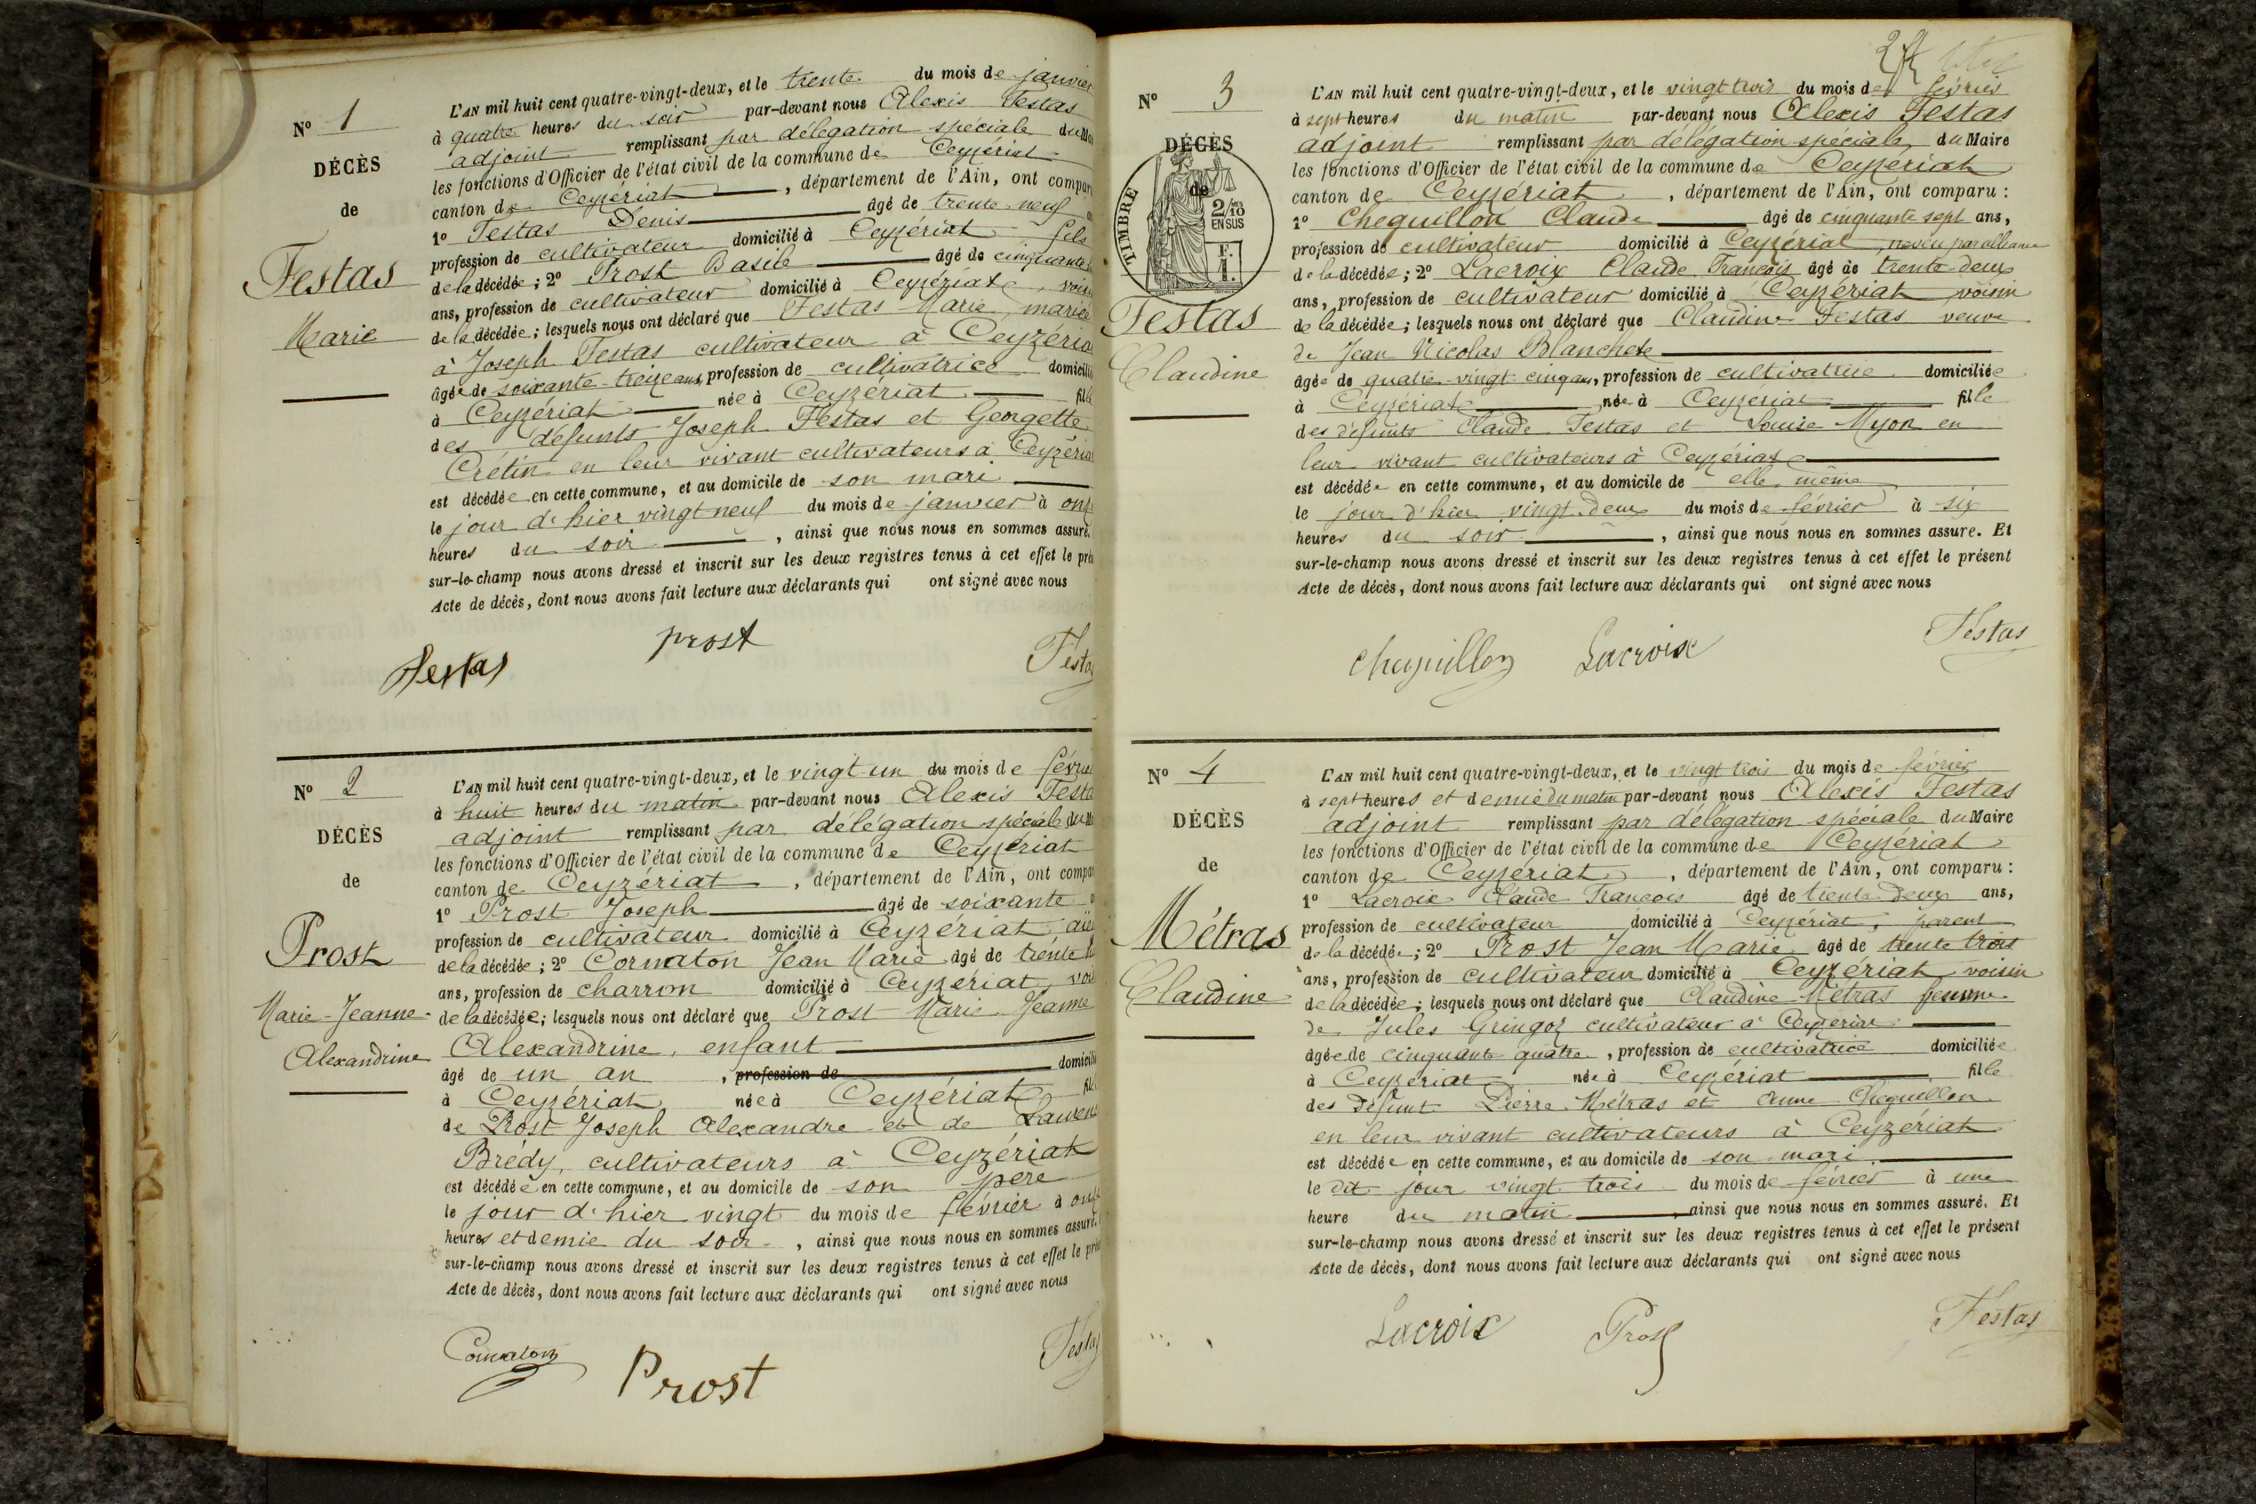 N° 1
DÉCÈS
de
Festas
Marie
L'AN mil huit cent quatre-vingt-deux, et le trente du mois de janvier
à quatre heures du soir par-devant nous Alexis Festas
adjoint remplissant par délégation spéciale du
les fonctions d'Officier de l'état civil de la commune de Ceyzériat
canton de Ceyzériat, département de l'Ain, ont
1° Festas Denis âgé de trente-neuf
profession de cultivateur domicilié à Ceyzériat fils
de la décédée; 2° Prost Basile âgé de cinquante
ans, profession de cultivateur domicilié à Ceyzériat,
de la décédée; lesquels nous ont déclaré que Festas Marie, mariée
à Joseph Festas cultivateur à
âgée de soixante-treize ans, profession de cultivatrice
à Ceyzériat née à Ceyzériat fille
des défunts Joseph Festas et Georgette
Crétin en leur vivant cultivateurs à
est décédée en cette commune, et au domicile de son mari
le jour d'hier vingt neuf du mois de janvier à
heures du soir, ainsi que nous nous en sommes assuré.
sur-le-champ nous avons dressé et inscrit sur les deux registres tenus à cet effet le
Acte de décès, dont nous avons fait lecture aux déclarants qui ont signé avec nous
Festas prost Festas
N° 2
DÉCÈS
de
Prost
Marie-Jeanne-
Alexandrine
L'AN mil huit cent quatre-vingt-deux, et le vingt-un du mois de
à huit heures du matin par-devant nous Alexis
adjoint remplissant par délégation spéciale du
les fonctions d'Officier de l'état civil de la commune de Ceyzériat
canton de Ceyzériat, département de l'Ain, ont
1° Prost Joseph âgé de soixante
profession de cultivateur domicilié à Ceyzériat
de la décédée; 2° Cornaton Jean Marie âgé de trente
ans, profession de charron domicilié à Ceyzériat,
de la décédée; lesquels nous ont déclaré que Prost Marie Jeanne
Alexandrine, enfant
âgé de un an, profession de
à Ceyzériat née à Ceyzériat
de Prost Joseph Alexandre et de
Brédy, cultivateurs à Ceyzériat
est décédée en cette commune, et au domicile de son père
le jour d'hier vingt du mois de février à
heures et demie du soir, ainsi que nous nous en sommes assuré.
sur-le-champ nous avons dressé et inscrit sur les deux registres tenus à cet effet le
Acte de décès, dont nous avons fait lecture aux déclarants qui ont signé avec nous
Cornaton Prost Festas
N° 3
DÉCÈS
de
TIMBRE
2/10
EN SUS
F.
1.
Festas
Claudine
L'AN mil huit cent quatre-vingt-deux, et le vingt trois du mois de février
à sept heures du matin par-devant nous Alexis Festas
adjoint remplissant par délégation spéciale du Maire
les fonctions d'Officier de l'état civil de la commune de Ceyzériat
canton de Ceyzériat, département de l'Ain, ont comparu:
1° Cheguillon Claude âgé de cinquante sept ans,
profession de cultivateur domicilié à Ceyzériat, neveu par alliance
de la décédée; 2° Lacroix Claude François âgé de trente deux
ans, profession de cultivateur domicilié à Ceyzériat voisin
de la décédée; lesquels nous ont déclaré que Claudine Festas veuve
de Jean Nicolas Blanchet
âgée de quatre-vingt cinq ans, profession de cultivatrice domiciliée
à Ceyzériat née à Ceyzériat fille
des défunts Claude Festas et Louise Myon en
leur vivant cultivateurs à Ceyzériat
est décédée en cette commune, et au domicile de elle même
le jour d'hier vingt-deux du mois de février à six
heures du soir, ainsi que nous nous en sommes assuré. Et
sur-le-champ nous avons dressé et inscrit sur les deux registres tenus à cet effet le présent
Acte de décès, dont nous avons fait lecture aux déclarants qui ont signé avec nous
Cheguillon Lacroix Festas
N° 4
DÉCÈS
de
Métras
Claudine
L'AN mil huit cent quatre-vingt-deux, et le vingt trois du mois de février
à sept heures et demie du matin par-devant nous Alexis Festas
adjoint remplissant par délégation spéciale du Maire
les fonctions d'Officier de l'état civil de la commune de Ceyzériat
canton de Ceyzériat, département de l'Ain, ont comparu:
1° Lacroix Claude François âgé de trente deux ans,
profession de cultivateur domicilié à Ceyzériat, parent
de la décédée; 2° Prost Jean Marie âgé de trente trois
ans, profession de cultivateur domicilié à Ceyzériat voisin
de la décédée; lesquels nous ont déclaré que Claudine Métras femme
de Jules Gringoz cultivateur à Ceyzériat
âgée de cinquante quatre, profession de cultivatrice domiciliée
à Ceyzériat née à Ceyzériat fille
des défunt Pierre Métras et Anne Cheguillon
en leur vivant cultivateurs à Ceyzériat
est décédée en cette commune, et au domicile de son mari
le dit jour vingt trois du mois de février à une
heure du matin, ainsi que nous nous en sommes assuré. Et
sur-le-champ nous avons dressé et inscrit sur les deux registres tenus à cet effet le présent
Acte de décès, dont nous avons fait lecture aux déclarants qui ont signé avec nous
Lacroix Prost Festas